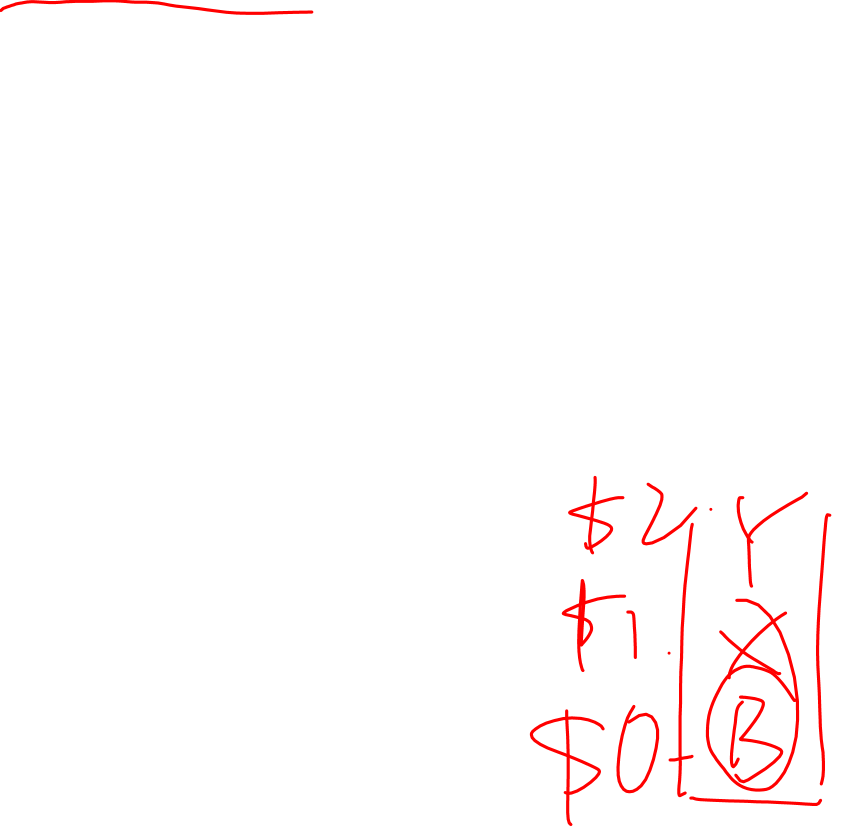 $2 Y
$1 X
$0 B